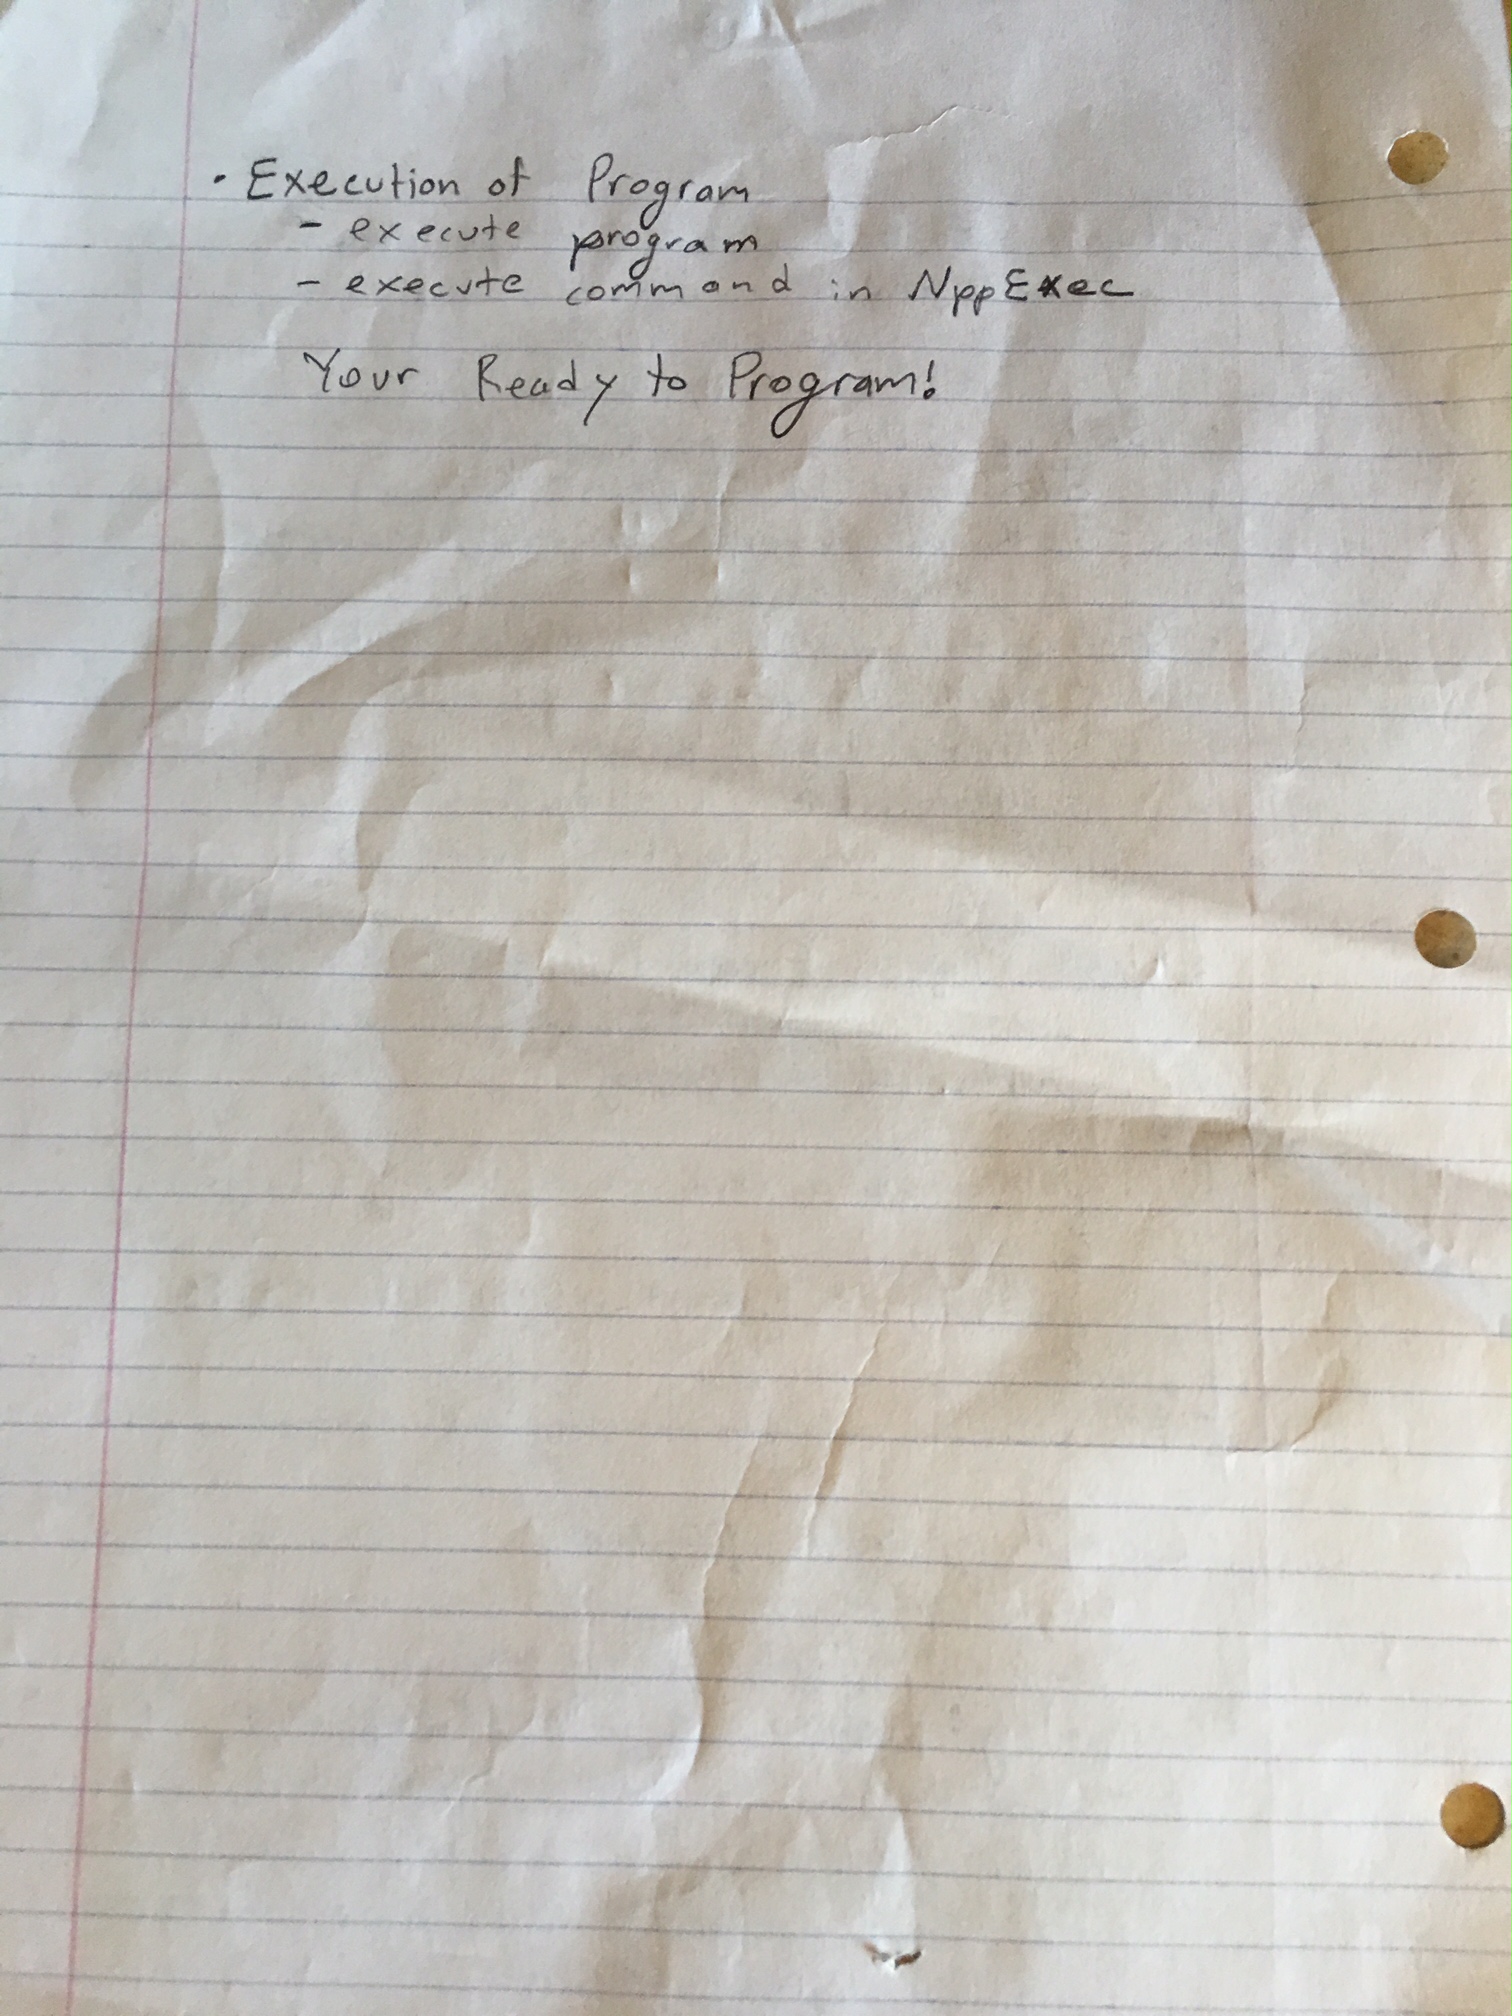 · Execution of Program
- execute program
- execute command in NppExec
Your Ready to Program!